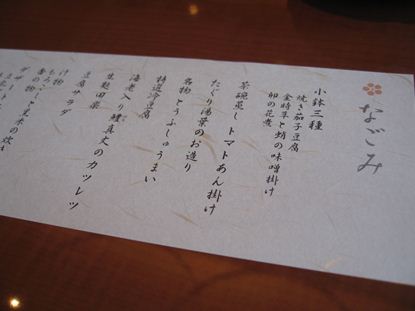 なごみ
小鉢三種
焼き茄子豆腐
金時草と蛸の味噌掛け
卯の花煮
茶碗蒸し トマトあん掛け
たぐり湯葉のお造り
名物とうふしゅうまい
特選冷豆腐
海老入り鱧真丈のカツレツ
生麩田楽
豆腐サラダ
け物
香の物